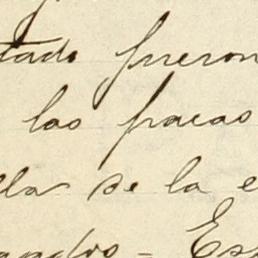 tado fueron
las pacas
lla de la e
andro - Es